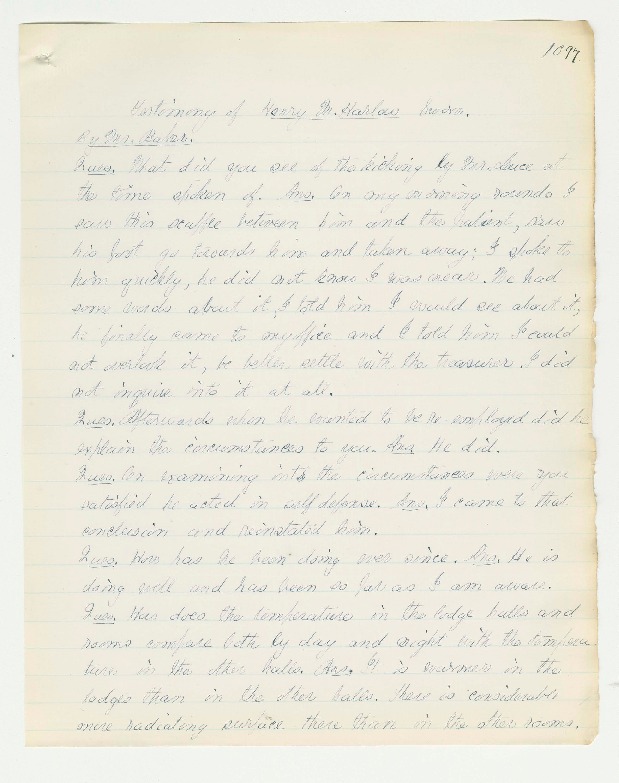 1097.
Testimony of Henry M. Hurlow sworn.
By Mr. Baker.
Ques. What did you see of the kicking by Mr. Luce at
the time spoken of. Ans. On my evening rounds I
saw this scuffle between him and the patient, saw
his foot go towards him and taken away; I spoke to
him quickly, he did not know I was near. We had
some words about it, I told him I would see about it,
he finally came to my office and I told him I could
not overlook it, he better settle with the treasurer. I did
not inquire into it at all.
Ques. Afterwards when he wanted to be re employed did he
explain the circumstances to you. Ans He did.
Ques. On examining into the circumstances were you
satisfied he acted in self defense. Ans. I came to that
conclusion and reinstated him.
Ques. How has he been doing ever since. Ans. He is
doing well and has been so far as I am aware.
Ques. How does the temperature in the lodge halls and
rooms compare both by day and night with the tempera
tures in the other halls. Ans. It is warmer in the
lodges than in the other halls. There is considerable
more radiating surface there than in the other rooms.